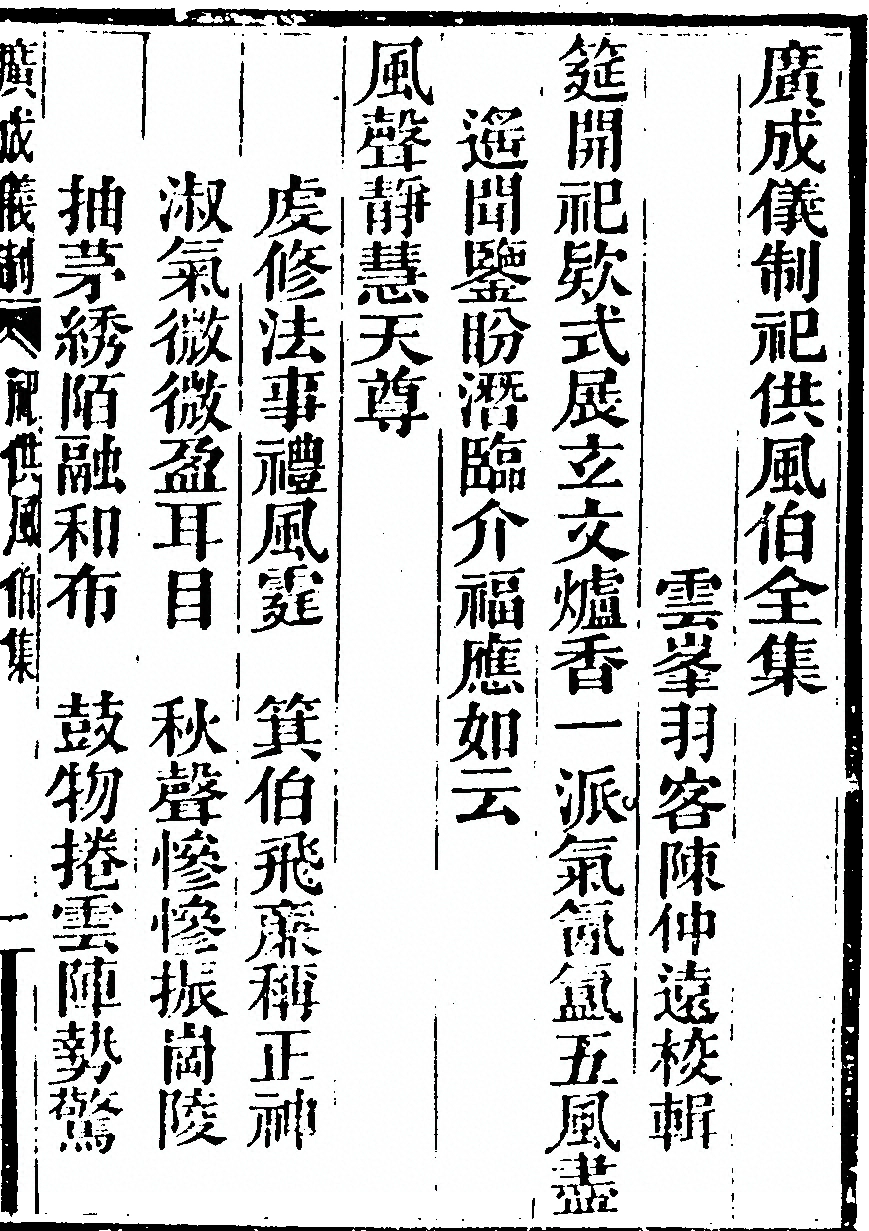 廣成儀制祀供風伯全集
雲峯羽客陳仲遠校輯
筵開祀欵式展立文爐香一派氣氤氳五風盡
遥聞鑒盼潛臨介福應如云
風聲靜慧天尊
虔修法事禮風霆 箕伯飛廉稱正神
淑氣微微盈耳目 秋聲慘慘振崗陵
抽茅綉陌融和布 鼓物捲雲陣勢驚
廣成儀制 祀供風伯集 一